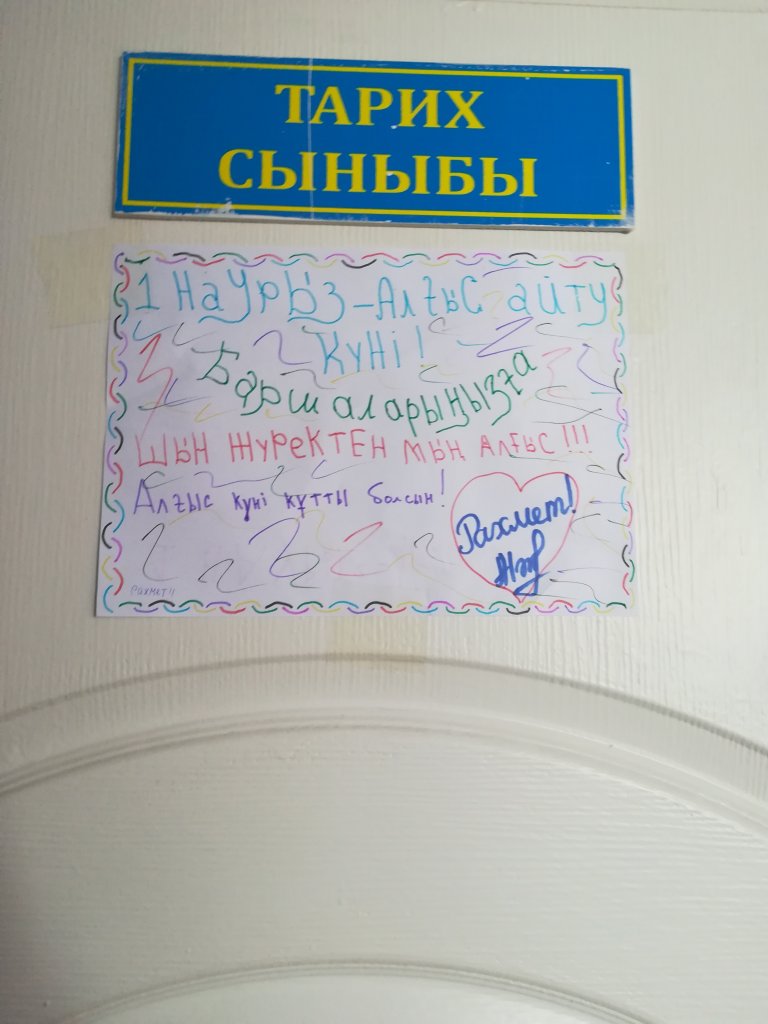 ТАРИХ
СЫНЫБЫ
1 Наурыз - Алғыс айту
күні!
Баршаларыңызға
шын жүректен мың алғыс!!!
Алғыс күні құтты болсын!
Рахмет!
Рахмет!!